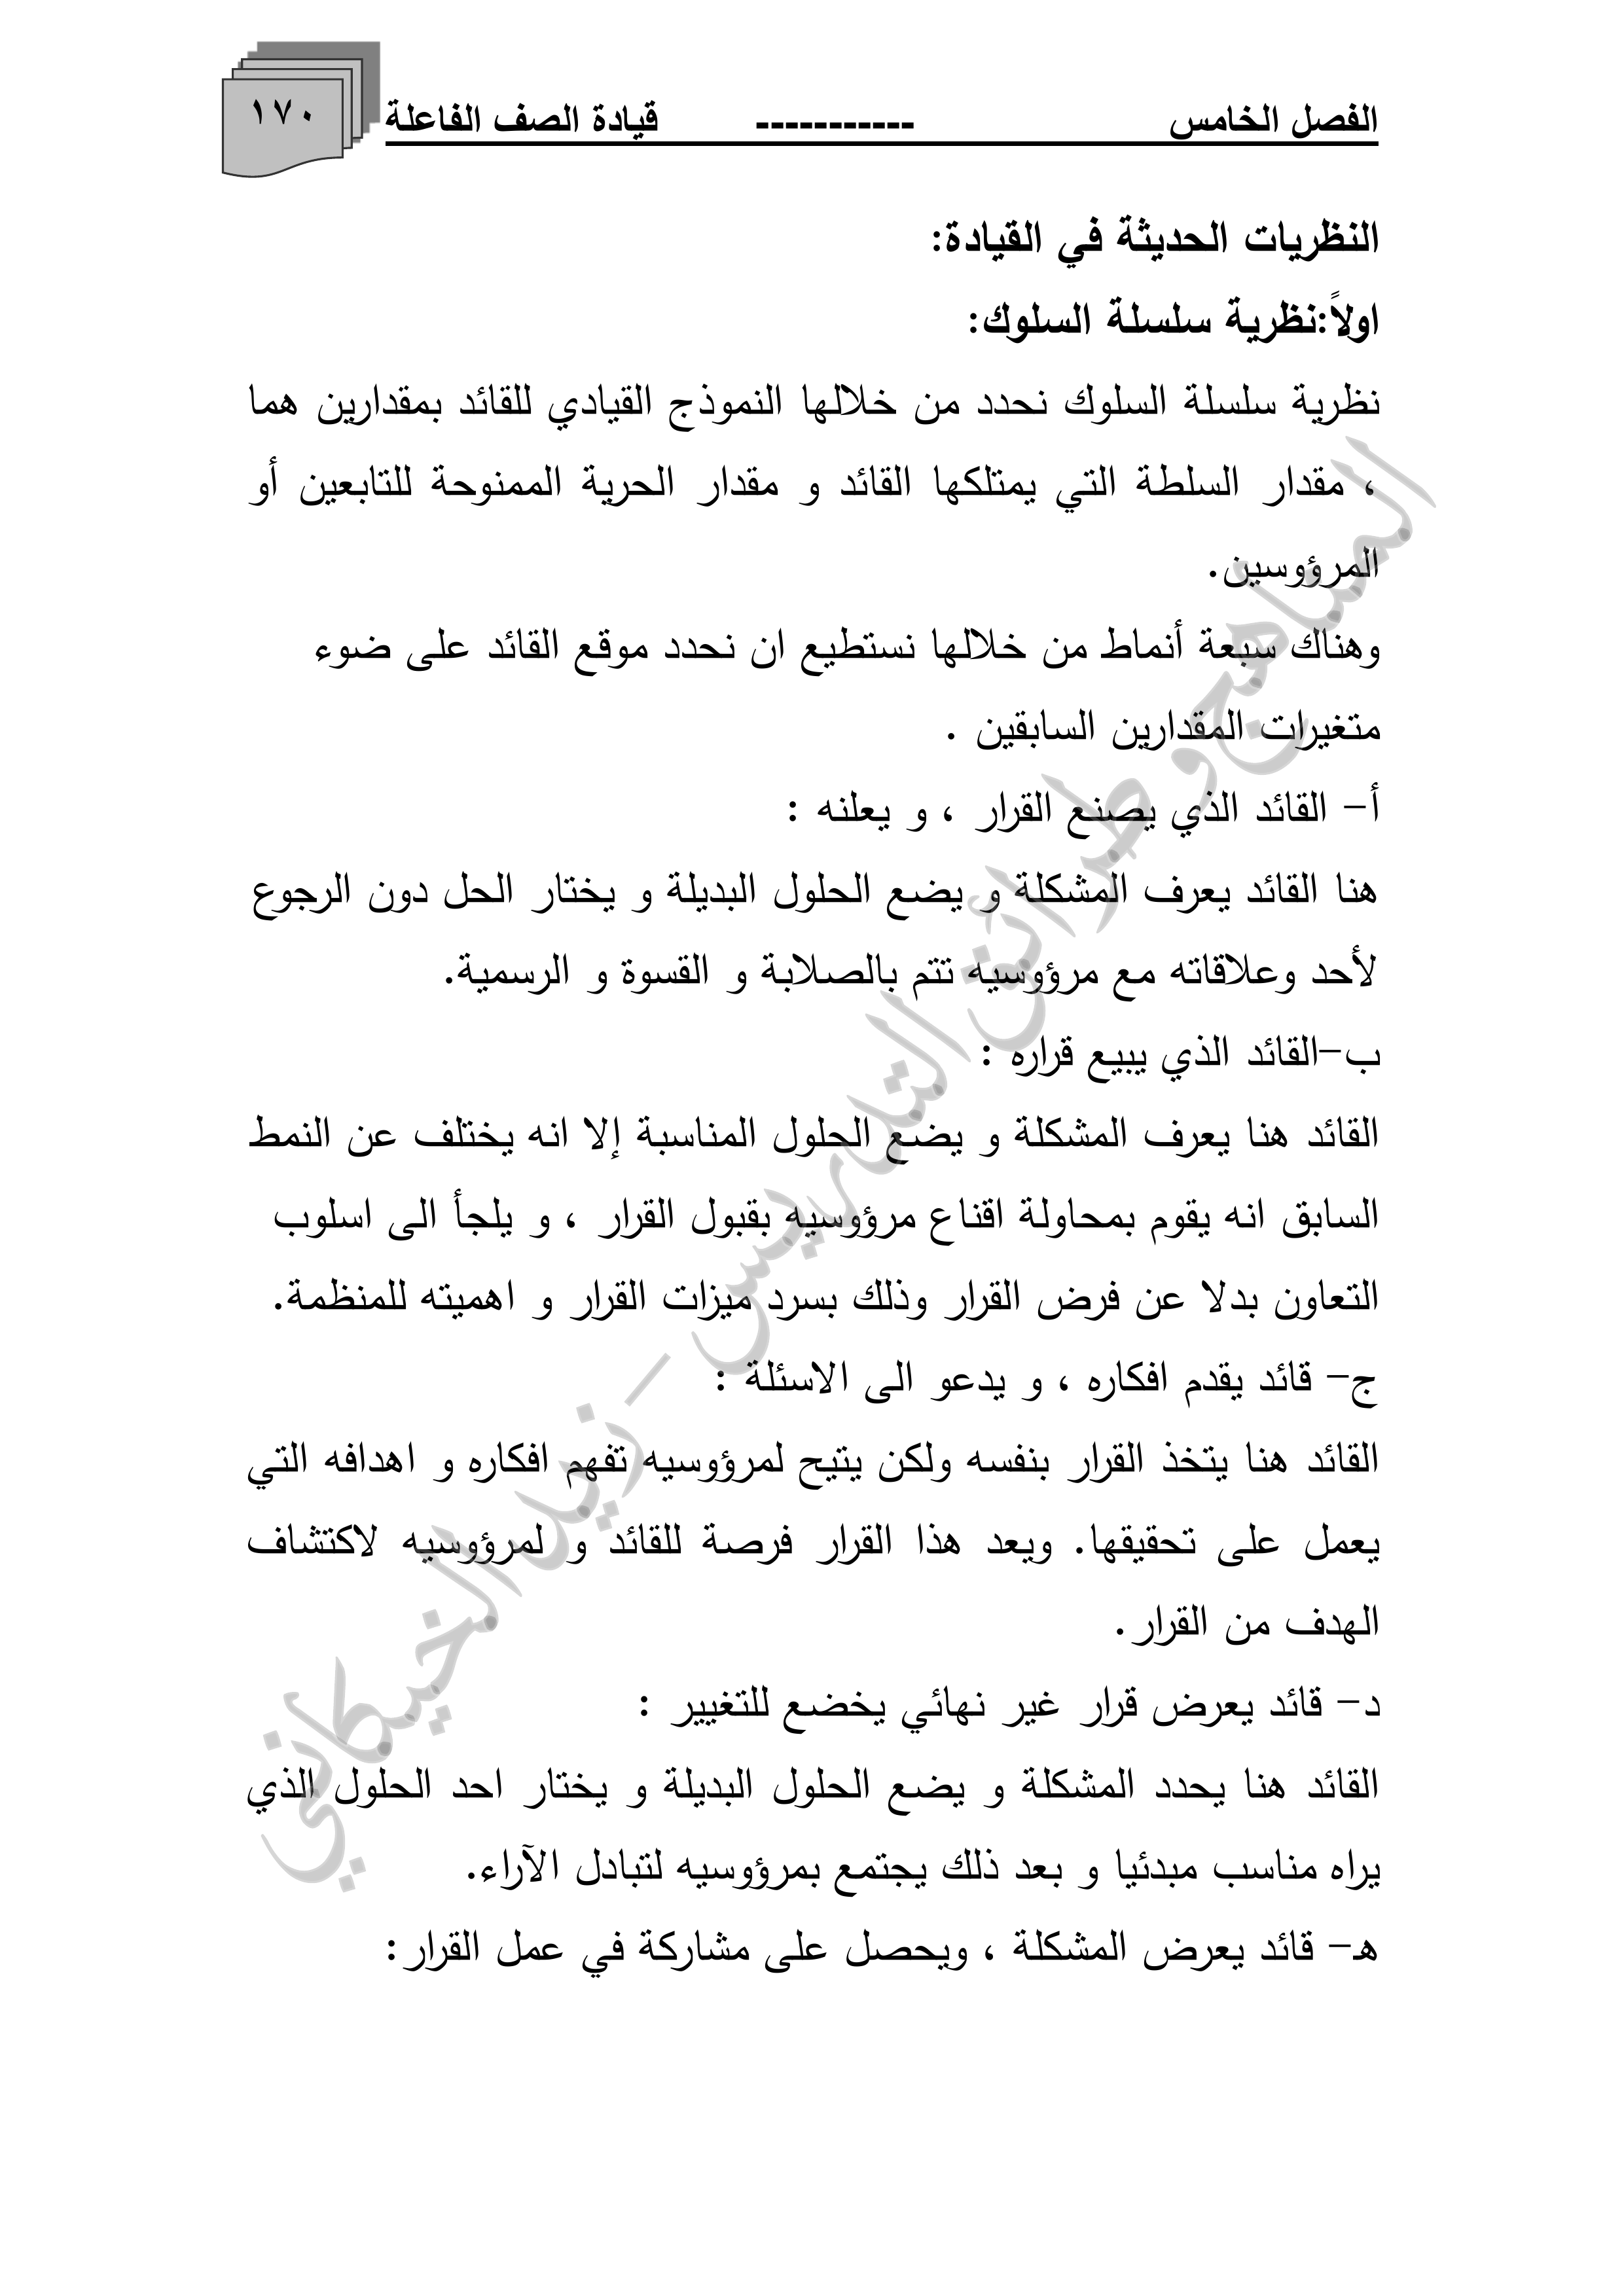 الفصل الخامس ----------- قيادة الصف الفاعلة ١٧٠
النظريات الحديثة في القيادة:
اولاً:نظرية سلسلة السلوك:
نظرية سلسلة السلوك نحدد من خلالها النموذج القيادي للقائد بمقدارين هما
، مقدار السلطة التي يمتلكها القائد و مقدار الحرية الممنوحة للتابعين أو
المرؤوسين.
وهناك سبعة أنماط من خلالها نستطيع ان نحدد موقع القائد على ضوء
متغيرات المقدارين السابقين .
أ– القائد الذي يصنع القرار ، و يعلنه :
هنا القائد يعرف المشكلة و يضع الحلول البديلة و يختار الحل دون الرجوع
لأحد وعلاقاته مع مرؤوسيه تتم بالصلابة و القسوة و الرسمية.
ب–القائد الذي يبيع قراره :
القائد هنا يعرف المشكلة و يضع الحلول المناسبة إلا انه يختلف عن النمط
السابق انه يقوم بمحاولة اقناع مرؤوسيه بقبول القرار ، و يلجأ الى اسلوب
التعاون بدلا عن فرض القرار وذلك بسرد ميزات القرار و اهميته للمنظمة.
ج– قائد يقدم افكاره ، و يدعو الى الاسئلة :
القائد هنا يتخذ القرار بنفسه ولكن يتيح لمرؤوسيه تفهم افكاره و اهدافه التي
يعمل على تحقيقها. ويعد هذا القرار فرصة للقائد و لمرؤوسيه لاكتشاف
الهدف من القرار.
د– قائد يعرض قرار غير نهائي يخضع للتغيير :
القائد هنا يحدد المشكلة و يضع الحلول البديلة و يختار احد الحلول الذي
يراه مناسب مبدئيا و بعد ذلك يجتمع بمرؤوسيه لتبادل الآراء.
هـ– قائد يعرض المشكلة ، ويحصل على مشاركة في عمل القرار:
المناهج وطرائق التدريس - زيد الخيكاني